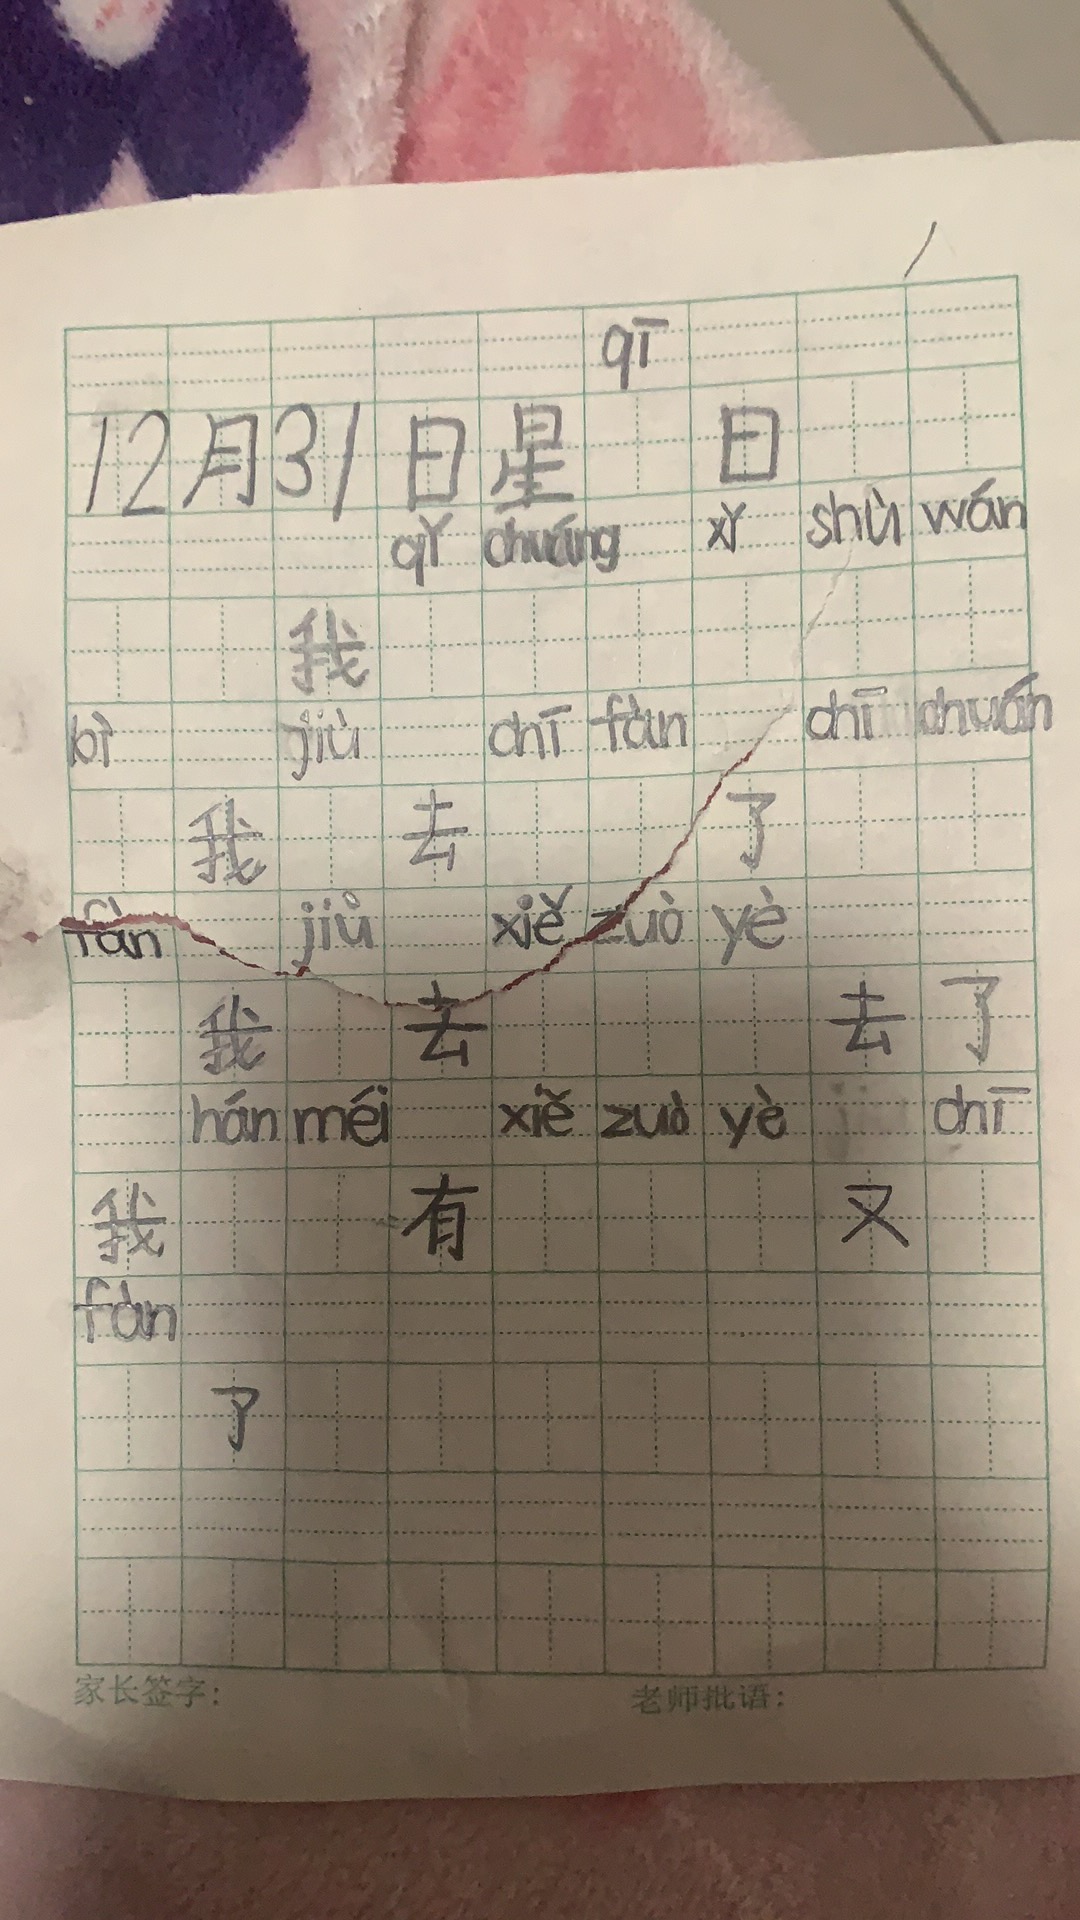 qī
12月31日星 日
qǐ chuáng xǐ shù wán
我
bì jiù chī fàn chī chuán
我 去 了
fàn jiù xiě zuò yè
我 去 去了
hán méi xiě zuò yè chī
我 有 又
fàn
了
家长签字: 老师批语: